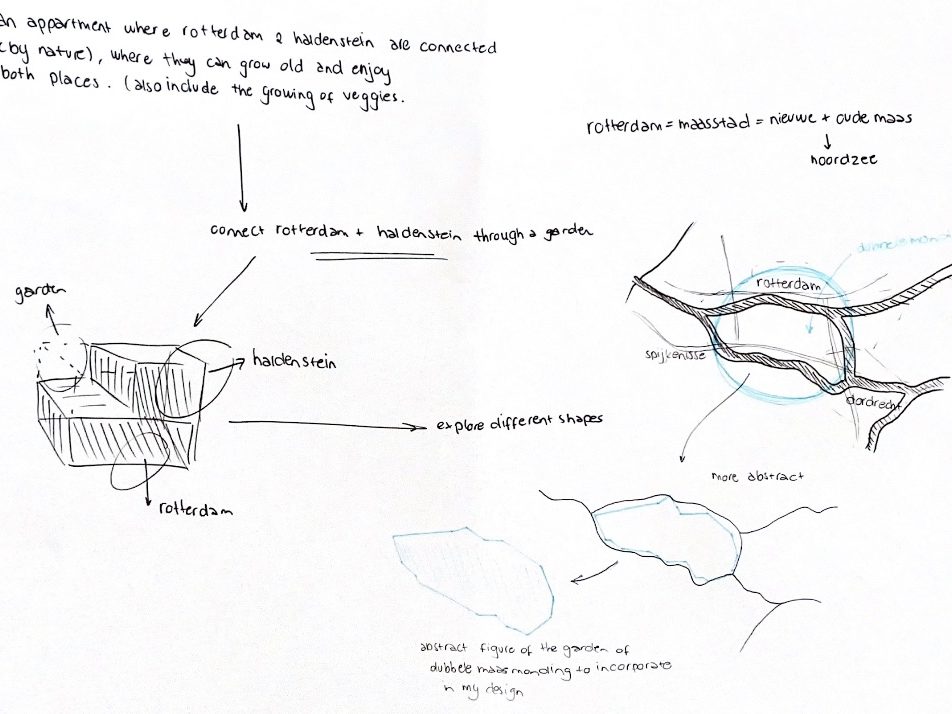 an appartment where rotterdam & haldenstein are connected
(by nature), where they can grow old and enjoy
both places. (also include the growing of veggies.
rotterdam = maasstad = nieuwe + oude maas
noordzee
connect rotterdam + haldenstein through a garden
garden
haldenstein
rotterdam
explore different shapes
rotterdam
spijkenisse
dordrecht
more abstract
abstract figure of the garden of
dubbele maasmonding to incorporate
in my design